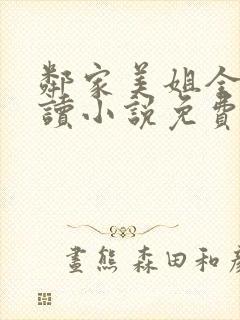 鄰家美姐全
讀小說免費
畫熊 森田和彥